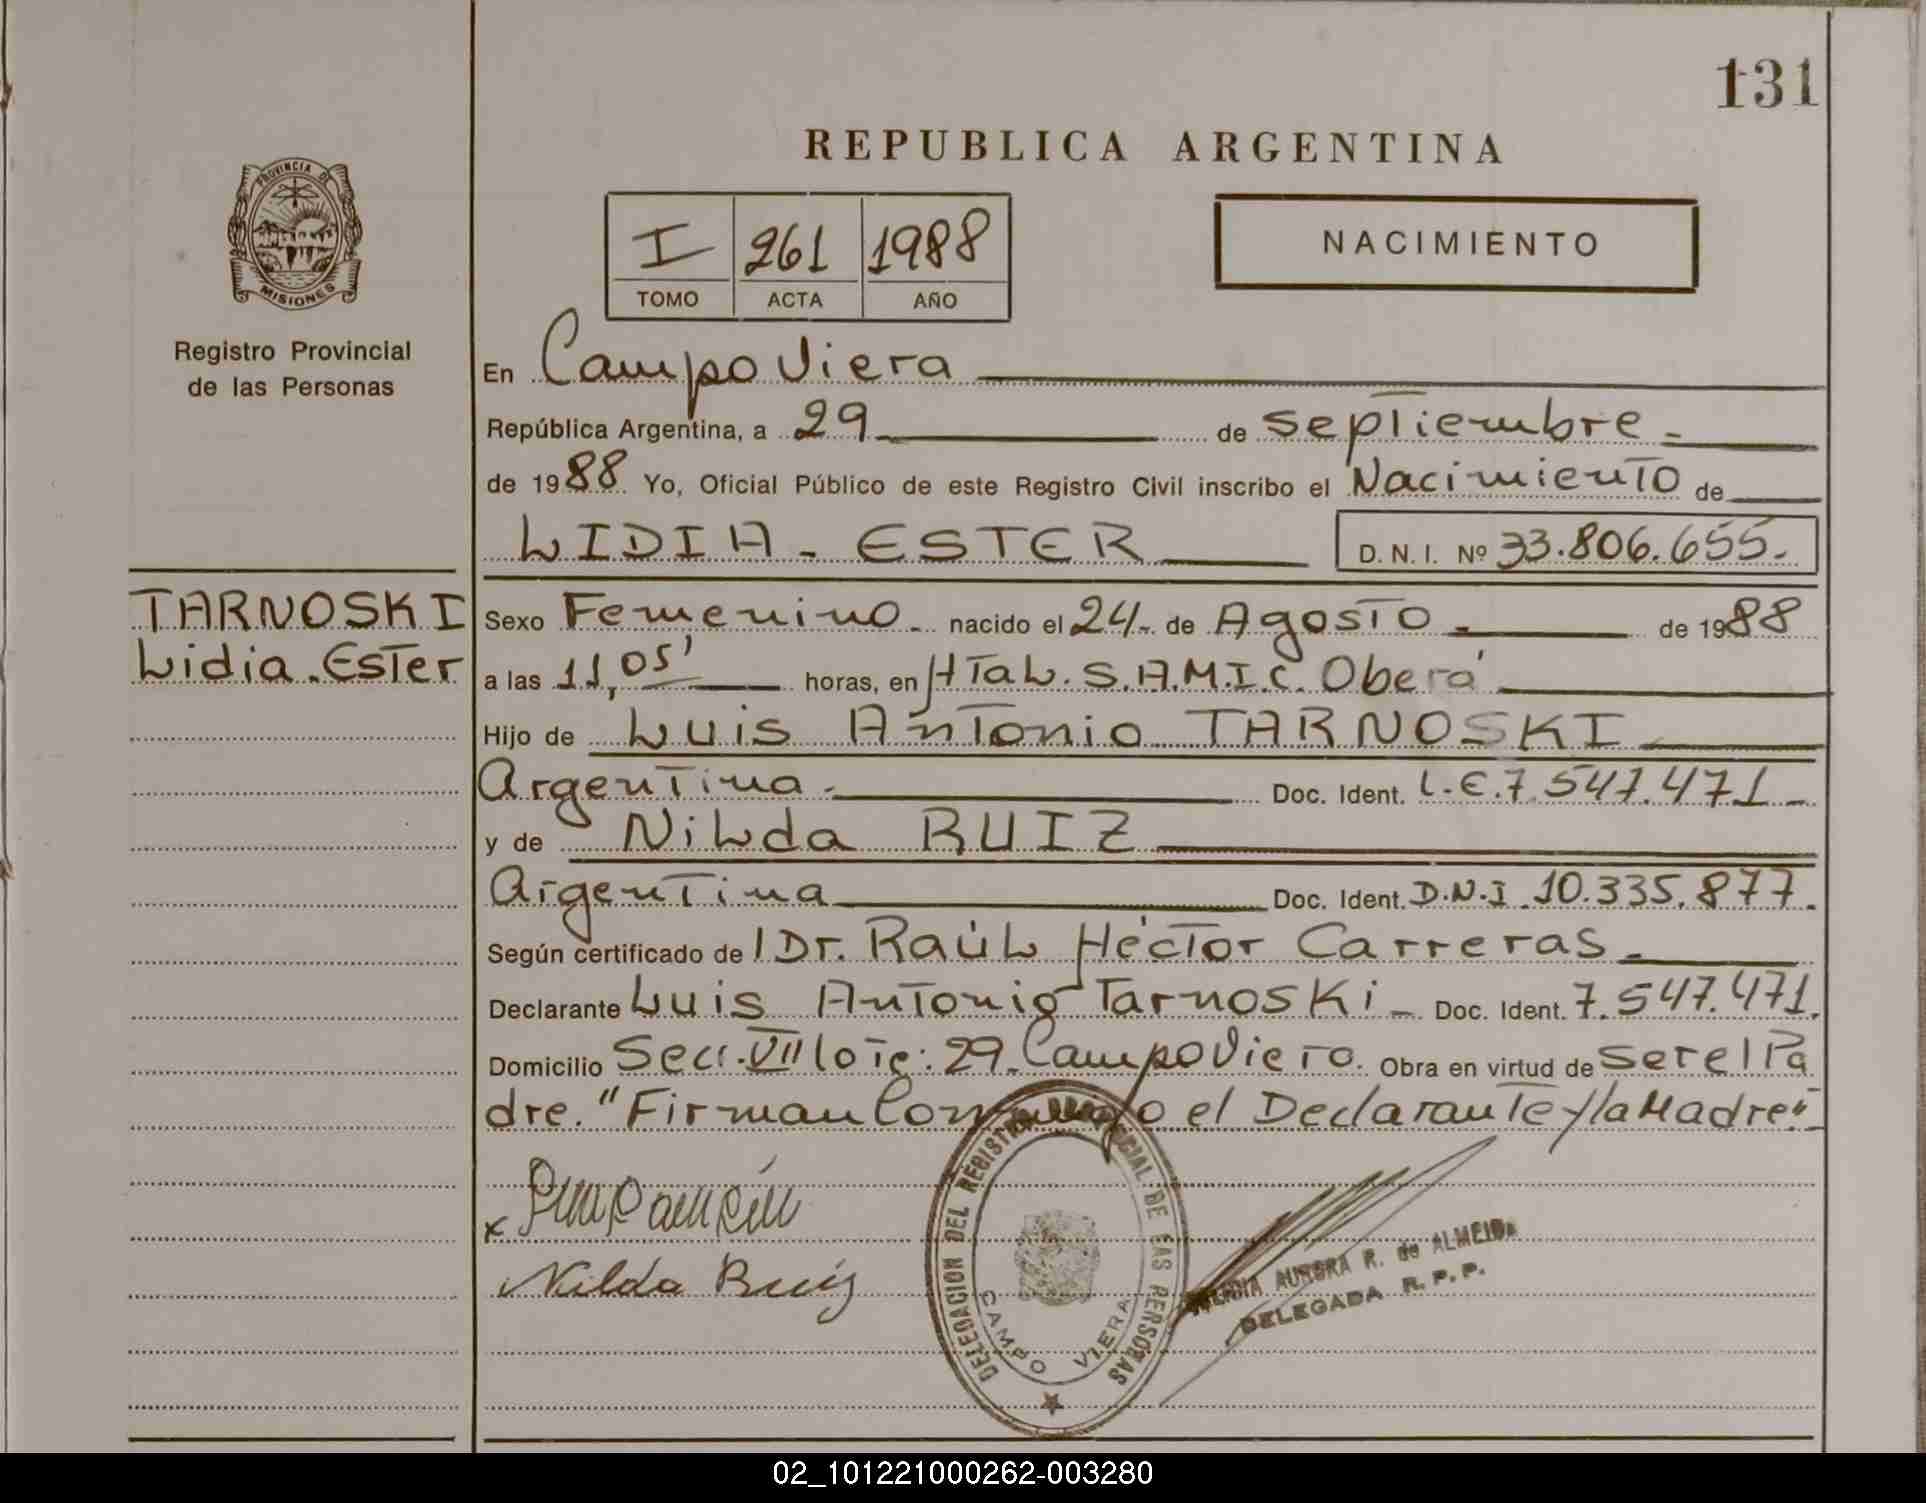 131
REPUBLICA ARGENTINA
PROVINCIA DE
MISIONES
Registro Provincial
de las Personas
I 261 1988
TOMO ACTA AÑO
NACIMIENTO
En Campo Viera
República Argentina, a 29 de septiembre
de 1988 Yo, Oficial Público de este Registro Civil inscribo el Nacimiento de
LIDIA - ESTER D. N. I. Nº 33.806.655.
TARNOSKI
Lidia Ester
Sexo Femenino nacido el 24 de Agosto de 1988
a las 11,05' horas, en HTal. S.A.M.I.C. Oberá
Hijo de Luis Antonio TARNOSKI
Argentina Doc. Ident. L.E. 7.547.471
y de Nilda RUIZ
Argentina Doc. Ident. D.N.I. 10.335.877.
Según certificado de Dr. Raúl Héctor Carreras
Declarante Luis Antonio Tarnoski Doc. Ident. 7.547.471.
Domicilio Secc. VII lote: 29. Campo Viera. Obra en virtud de ser el Pa
dre. "Firman Conmigo el Declarante y la Madre"
x
Nilda Ruiz
DELEGACION DEL REGISTRO PROVINCIAL DE LAS PERSONAS
CAMPO VIERA
AURORA R. de ALMEIDA
DELEGADA R. P. P.
02_101221000262-003280